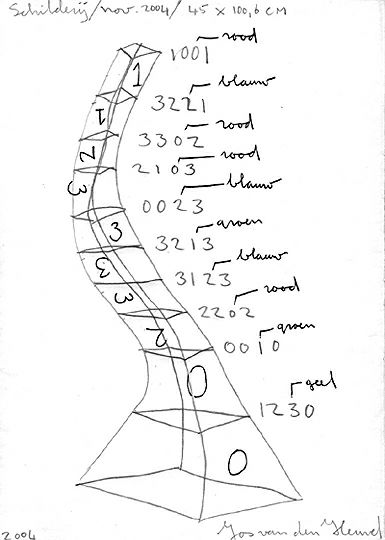 Schilderij/nov. 2004/ 45 x 100,6 CM
rood
1001
1
blauw
1
3221
rood
3302
2
rood
2103
3
blauw
0023
groen
3
3213
blauw
3
3123
3
rood
2202
2
groen
0010
0
geel
1230
0
2004
Jos van den Heuvel